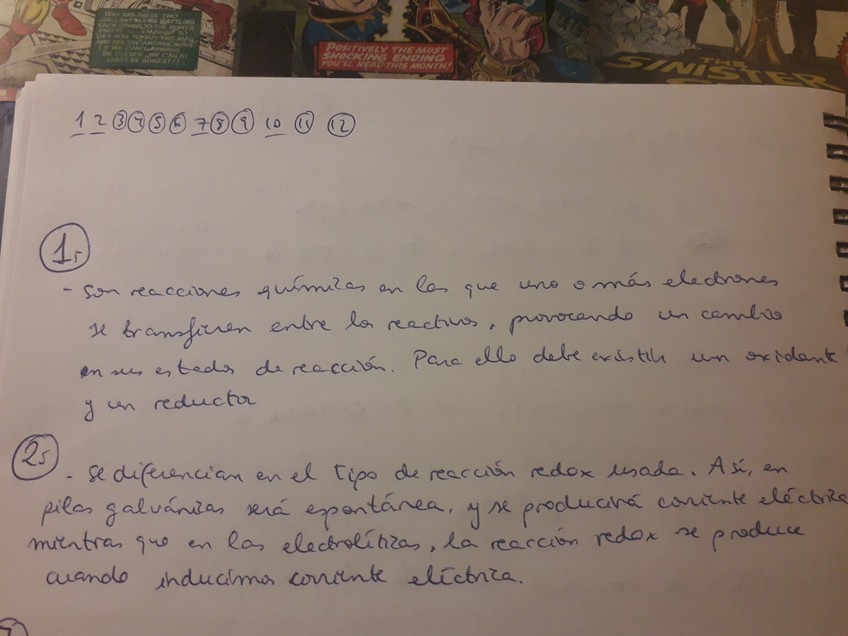 WHY ARE THESE TWO
POSITIVELY THE MOST
SHOCKING ENDING
YOU'LL READ THIS MONTH!
THE
SINISTER
1 2 3 4 5 6 7 8 9 10 11 12
1.
- Son reacciones químicas en las que uno o más electrones
se transfieren entre los reactivos, provocando un cambio
en sus estados de reacción. Para ello debe existir un oxidante
y un reductor
2.
- Se diferencian en el tipo de reacción redox usada. Así, en
pilas galvánicas será espontánea, y se producirá corriente eléctrica
mientras que en las electrolíticas, la reacción redox se produce
cuando inducimos corriente eléctrica.